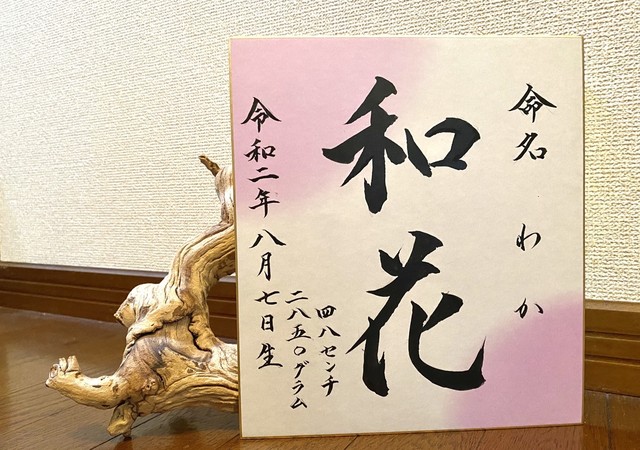 命名 わか
和花
四八センチ
二八五〇グラム
令和二年八月七日生